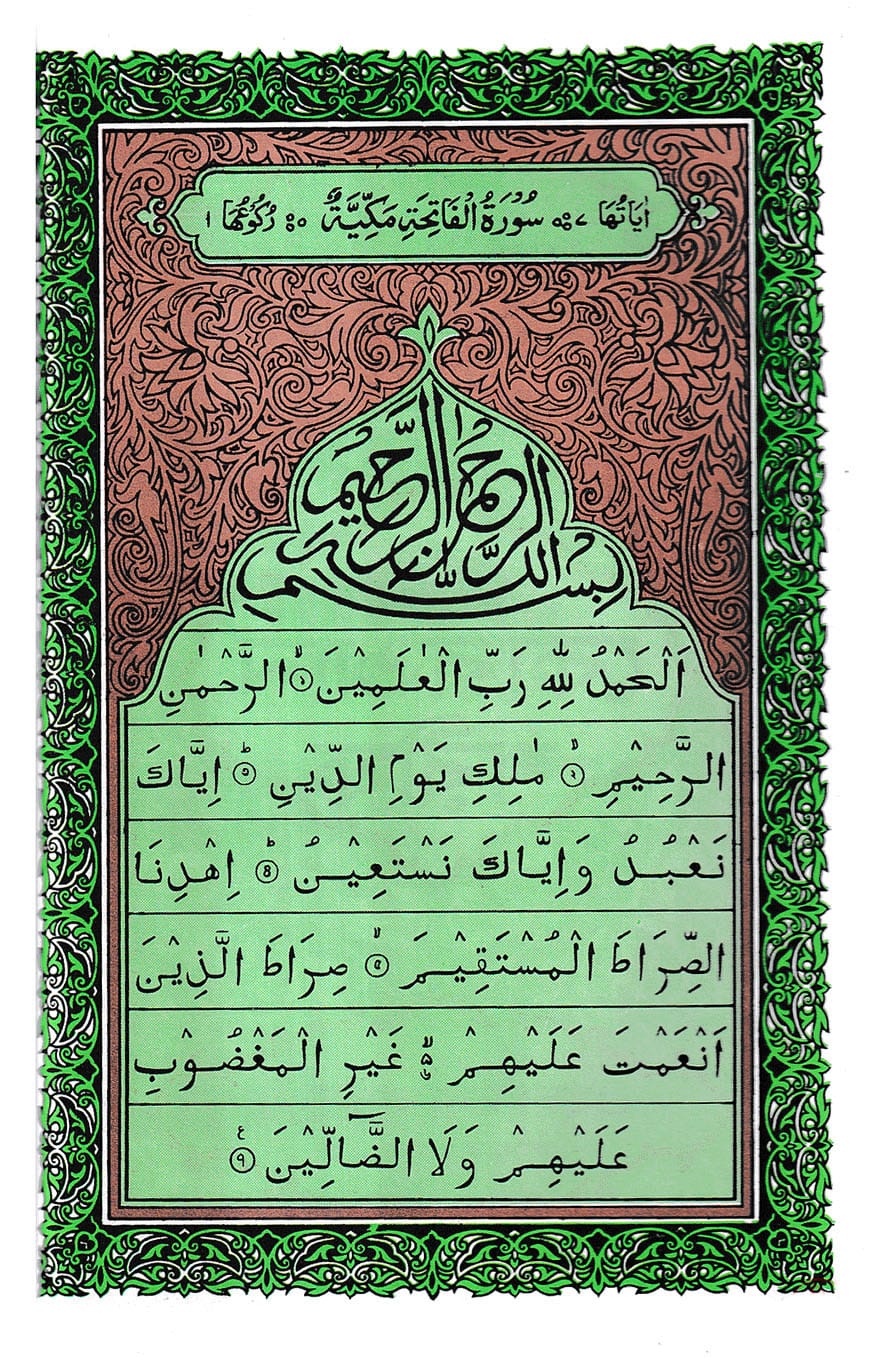 اٰیَاتُهَا ۷ سُوْرَةُ الْفَاتِحَةِ مَكِّیَّةٌ ۵ رُكُوْعُهَا ۱
بِسْمِ اللّٰهِ الرَّحْمٰنِ الرَّحِیْمِ
اَلْحَمْدُ لِلّٰهِ رَبِّ الْعٰلَمِیْنَ ۙ﴿۱﴾ الرَّحْمٰنِ
الرَّحِیْمِ ۙ﴿۲﴾ مٰلِكِ یَوْمِ الدِّیْنِ ؕ﴿۳﴾ اِیَّاكَ
نَعْبُدُ وَاِیَّاكَ نَسْتَعِیْنُ ؕ﴿۴﴾ اِهْدِنَا
الصِّرَاطَ الْمُسْتَقِیْمَ ۙ﴿۵﴾ صِرَاطَ الَّذِیْنَ
اَنْعَمْتَ عَلَیْهِمْ ۙ۵ غَیْرِ الْمَغْضُوْبِ
عَلَیْهِمْ وَلَا الضَّآلِّیْنَ ﴿۹﴾ ع